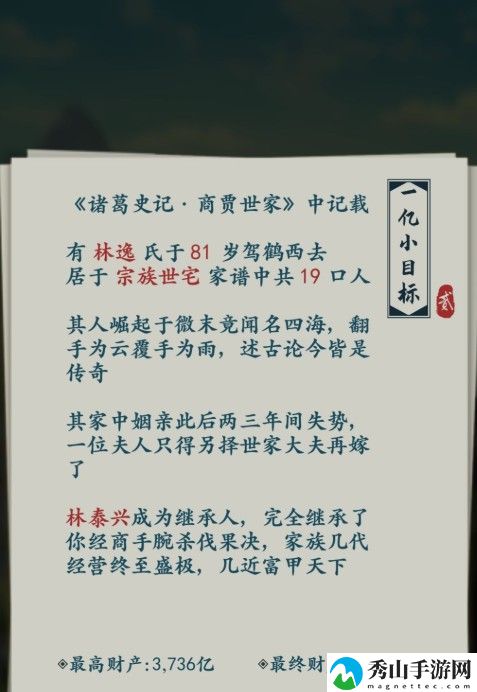 《诸葛史记·商贾世家》中记载
一亿小目标
贰
有 林逸 氏于 81 岁驾鹤西去
居于 宗族世宅 家谱中共 19 口人
其人崛起于微末竟闻名四海，翻
手为云覆手为雨，述古论今皆是
传奇
其家中姻亲此后两三年间失势，
一位夫人只得另择世家大夫再嫁
了
林泰兴成为继承人，完全继承了
你经商手腕杀伐果决，家族几代
经营终至盛极，几近富甲天下
◈最高财产:3,736亿
◈最终财
秀山手游网
magnettec.com